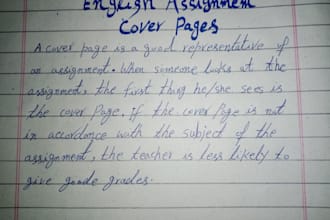 English Assignment
Cover Pages
A cover page is a good representative of
an assignment. When someone looks at the
assignment, the first thing he/she sees is
the cover Page. If the cover Page is not
in accordance with the subject of the
assignment, the teacher is less likely to
give goode grades.